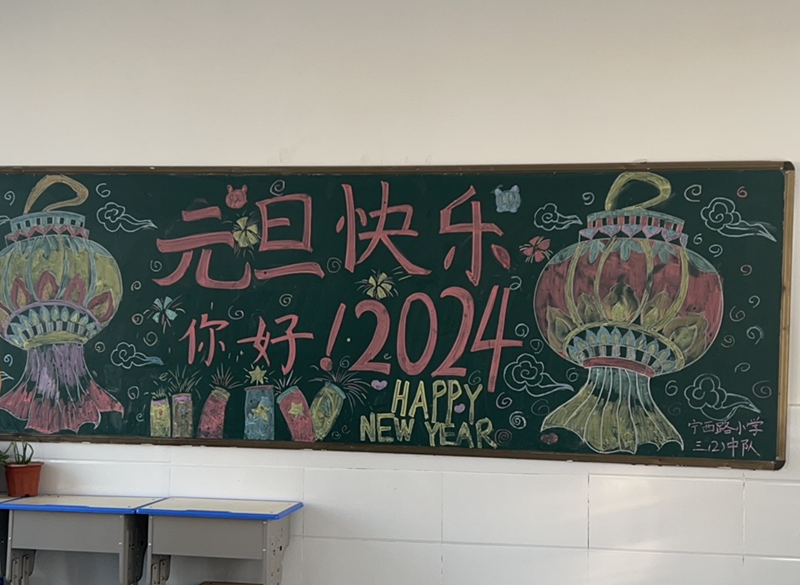 元旦快乐
你好！2024
HAPPY
NEW YEAR
宁西路小学
三(2)中队